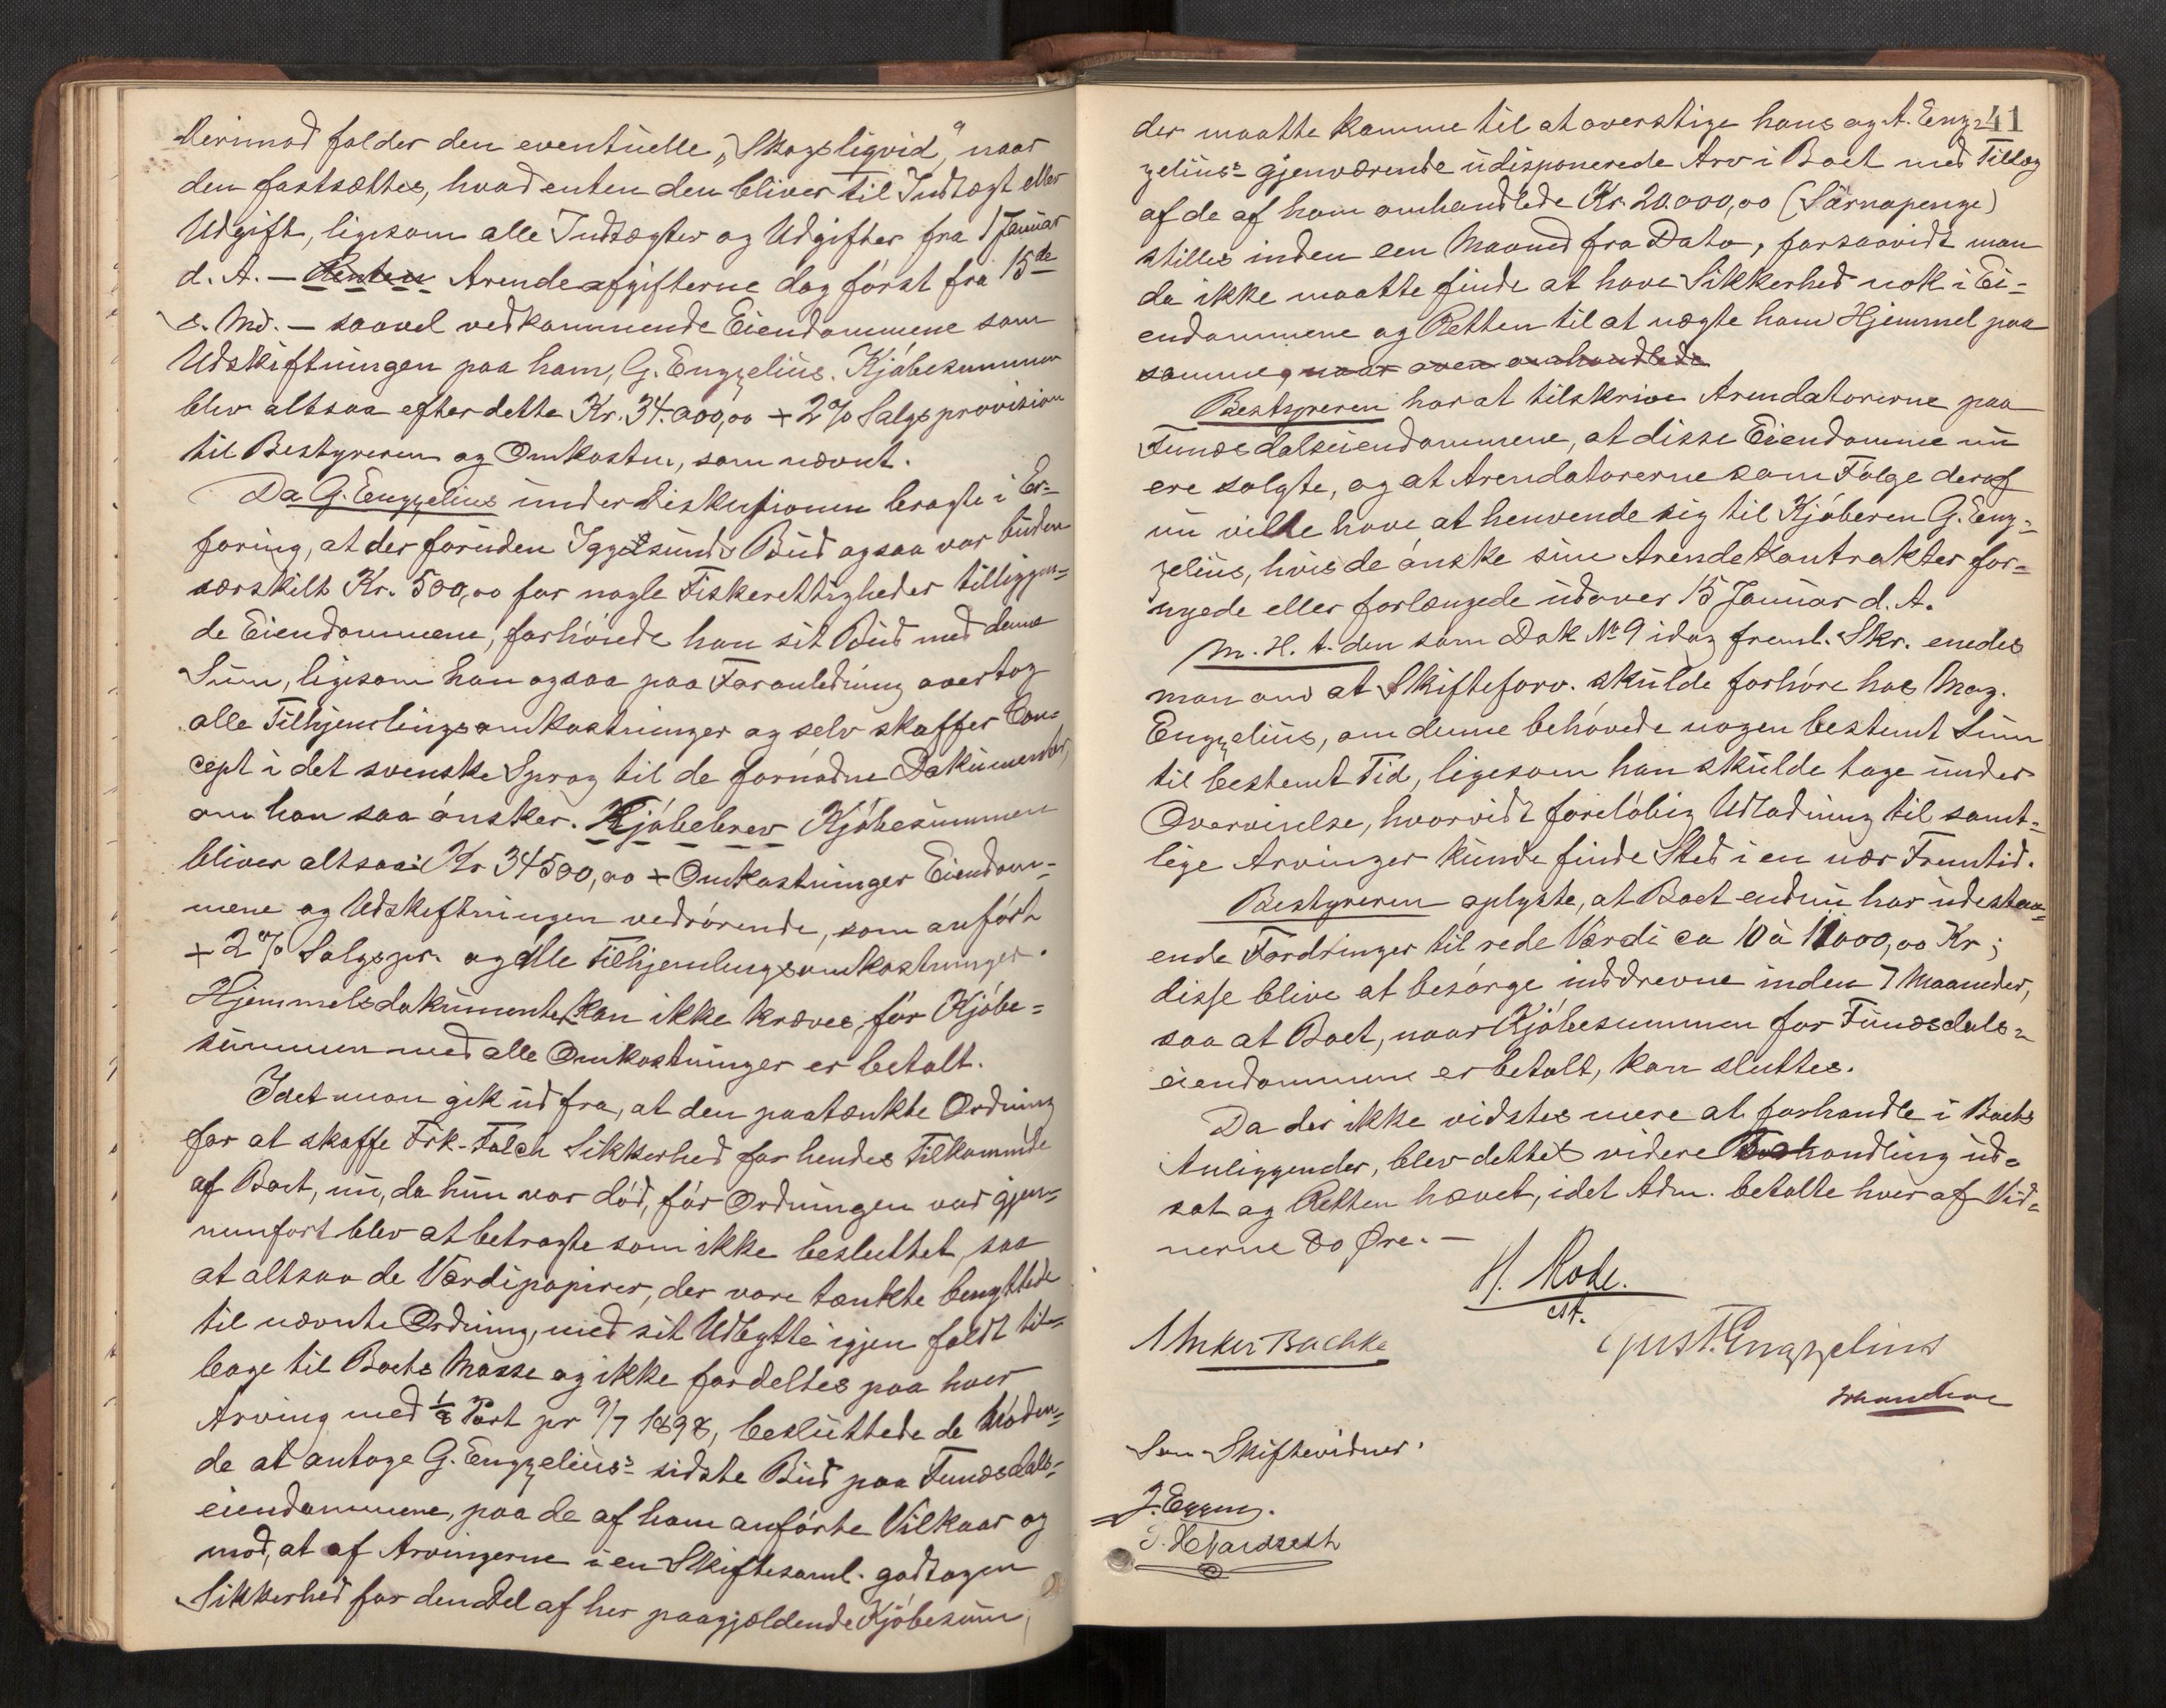 Derimod falder den eventuelle „Skogsliqvid“, naar
den fastsættes, hvad enten den bliver til Indtægt eller
Udgift, ligesom alle Indtægter og Udgifter fra 1 Januar
d. A. — Renten Arendeafgifterne dog först fra 15de
s. Md. — saavel vedkommende Eiendommene som
Udskiftningen paa ham, G. Engzelius. Kjöbesummen
blev altsaa efter dette Kr. 34.000,00 + 2% Salgsprovision
til Bestyreren og Omkostn., som nævnt.
Da G. Engzelius under Diskusionen bragte i Er-
faring, at der foruden Iggesunds Bud ogsaa var buden
særskilt Kr. 500,00 for nogle Fiskerettigheder tilliggen-
de Eiendommene, forhöiede han sit Bud med denne
Sum, ligesom han ogsaa paa Foranledning overtog
alle Tilhjemlingsomkostninger og selv skaffer Con-
cept i det svenske Sprog til de fornödne Dokumenter,
om han saa önsker. Kjöbebrev Kjöbesummen
bliver altsaa: Kr 34500,00 + Omkostninger Eiendom-
mene og Udskiftningen vedrörende, som anfört
+ 2% Salgspr. og alle Tilhjemlingsomkostninger.
Hjemmelsdokumenter kan ikke kræves, för Kjöbe-
summen med alle Omkostninger er betalt.
Idet man gik ud fra, at den paatænkte Ordning
for at skaffe Frk. Falch Sikkerhed for hendes Tilkommende
af Boet, nu, da hun var död, för Ordningen var gjen-
nemfört blev at betragte som ikke besluttet, saa
at altsaa de Værdipapirer, der vare tænkte benyttede
til nævnte Ordning, med sit Udbytte igjen faldt til-
bage til Boets Masse og ikke fordeltes paa hver
Arving med 1/8 Part pr 9/7 1898, besluttede de Möden-
de at antage G. Engzelius's sidste Bud paa Funæsdals-
eiendommene, paa de af ham anförte Vilkaar og
mod, at af Arvingerne i en Skiftesaml. godtagen
Sikkerhed for den Del af her paagjældende Kjöbesum,
41
der maatte komme til at overstige hans og A. Eng-
zelius's gjenværende udisponerede Arv i Boet med Tillæg
af de af ham omhandlede Kr. 20.000,00 (Särnapenge)
stilles inden een Maaned fra Dato, forsaavidt man
da ikke maatte finde at have Sikkerhed nok i Ei-
endommene og Retten til at nægte ham Hjemmel paa
samme, naar oven omhandlede
Bestyreren har at tilskrive Arendatorerne paa
Funæsdalseiendommene, at disse Eiendomme nu
ere solgte, og at Arendatorerne som Fölge deraf
nu ville have at henvende sig til Kjöberen G. Eng-
zelius, hvis de önske sine Arendekontrakter for-
nyede eller forlængede udover 15 Januar d. A.
M. H. t. den som Dok No 9 idag freml. Skr. enedes
man om at Skifteforv. skulde forhöre hos Mag.
Engzelius, om denne behövede nogen bestemt Sum
til bestemt Tid, ligesom han skulde tage under
Overveielse, hvorvidt foreløbig Udlodning til samt-
lige Arvinger kunde finde Sted i en nær Fremtid.
Bestyreren oplyste, at Boet endnu har udestaa-
ende Fordringer til rede Værdi ca 10 à 11000,00 Kr;
disse blive at besörge inddrevne inden 7 Maaneder,
saa at Boet, naar Kjöbesummen for Funæsdals-
eiendommene er betalt, kan sluttes.
Da der ikke vidstes mere at forhandle i Boets
Anliggender, blev dettes videre Behandling ud-
sat og Retten hævet, idet Adm. betalte hver af Vid-
nerne 80 Øre. —
H. Rode.
cst.
Anker Bachke
Gust. Engzelius
Som Skiftevidner.
J. Eggen.